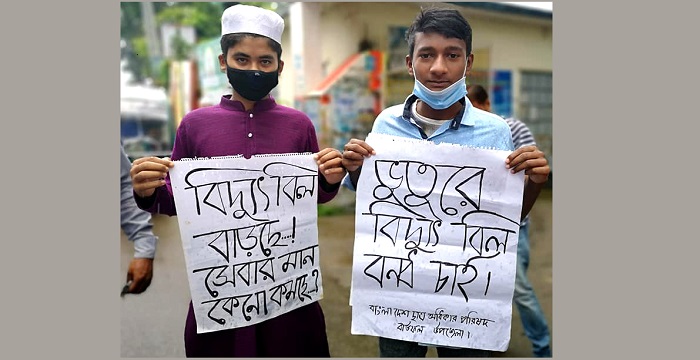 বিদ্যুৎ বিল
বাড়ছে...!
সেবার মান
কেনো কমছে..?
ভুতুরে
বিদ্যুৎ বিল
বন্ধ চাই।
বাংলাদেশ ছাত্র অধিকার পরিষদ
বাউফল উপজেলা।